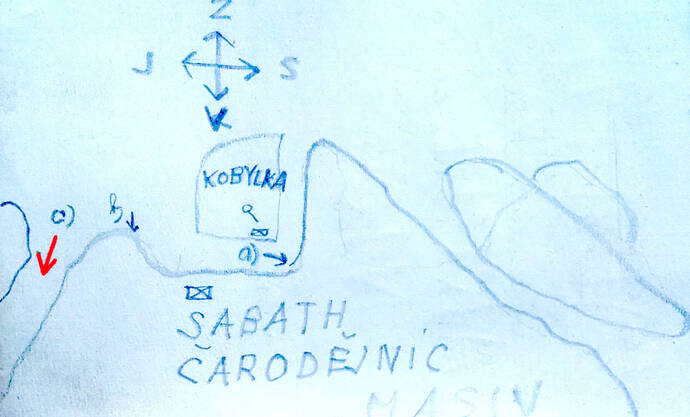 Z
J S
K
KOBYLKA
a)
b
a)
SABATH
ČARODĚJNIC
MASIV